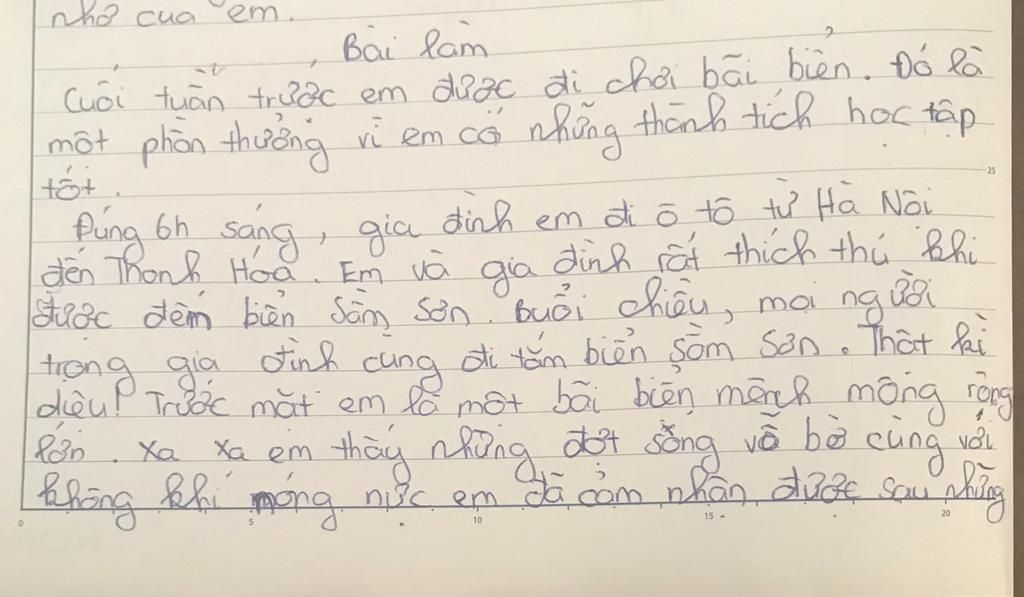 nhớ của em.
Bài làm
Cuối tuần trước em được đi chơi bãi biển. Đó là
một phần thưởng vì em có những thành tích học tập
tốt.
Đúng 6h sáng, gia đình em đi ô tô từ Hà Nội
đến Thanh Hóa. Em và gia đình rất thích thú khi
được đếm biển Sầm Sơn. Buổi chiều, mọi người
trong gia đình cùng đi tắm biển Sầm Sơn. Thật kì
diệu! Trước mặt em là một bãi biển mênh mông rộng
lớn. Xa xa em thấy những đợt sống vỗ bờ cùng với
không khí nóng nực em đã cảm nhận được sau những
0 5 10 15 20
25